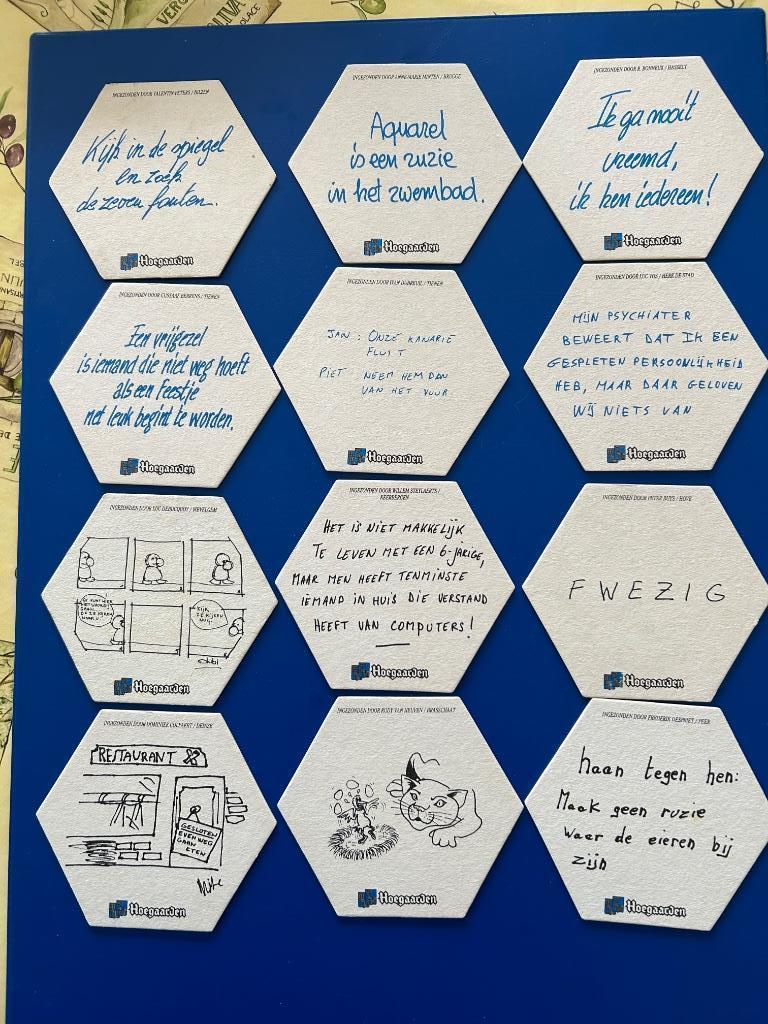 INGEZONDEN DOOR VALENTIN PETERS / BILZEN
Kijk in de spiegel
en zoek
de zeven fouten.
Hoegaarden
INGEZONDEN DOOR ANNE-MARIE MINTEN / BRUGGE
Aquarel
is een ruzie
in het zwembad.
Hoegaarden
INGEZONDEN DOOR R. BONNEUX / HASSELT
Ik ga nooit
vreemd,
ik ken iedereen!
Hoegaarden
INGEZONDEN DOOR GUSTAAF BERRENS / TIENEN
Een vrijgezel
is iemand die niet weg hoeft
als een feestje
net leuk begint te worden.
Hoegaarden
INGEZONDEN DOOR IVAN / TIENEN
JAN : ONZE KANARIE
FLUIT
PIET : NEEM HEM DAN
VAN HET VUUR
Hoegaarden
INGEZONDEN DOOR LUC VOS / HERK DE STAD
MIJN PSYCHIATER
BEWEERT DAT IK EEN
GESPLETEN PERSOONLIJKHEID
HEB, MAAR DAAR GELOVEN
WIJ NIETS VAN
Hoegaarden
INGEZONDEN DOOR LUC / WEVELGEM
KIJK,
ZE KIJKEN
NOG!
Hoegaarden
INGEZONDEN DOOR WILLEM STEYLAERTS /
KEERBERGEN
HET IS NIET MAKKELIJK
TE LEVEN MET EEN 6-JARIGE,
MAAR MEN HEEFT TENMINSTE
IEMAND IN HUIS DIE VERSTAND
HEEFT VAN COMPUTERS!
Hoegaarden
INGEZONDEN DOOR PETER BUYS / HOVE
FWEZIG
Hoegaarden
INGEZONDEN DOOR DOMINIEK / DEINZE
RESTAURANT
GESLOTEN
EVEN WEG
GAAN
ETEN
Hoegaarden
INGEZONDEN DOOR RUDY VAN HEUVEN / BRASSCHAAT
Hoegaarden
INGEZONDEN DOOR FREDERIK DESMET / PEER
haan tegen hen:
Maak geen ruzie
waar de eieren bij
zijn
Hoegaarden